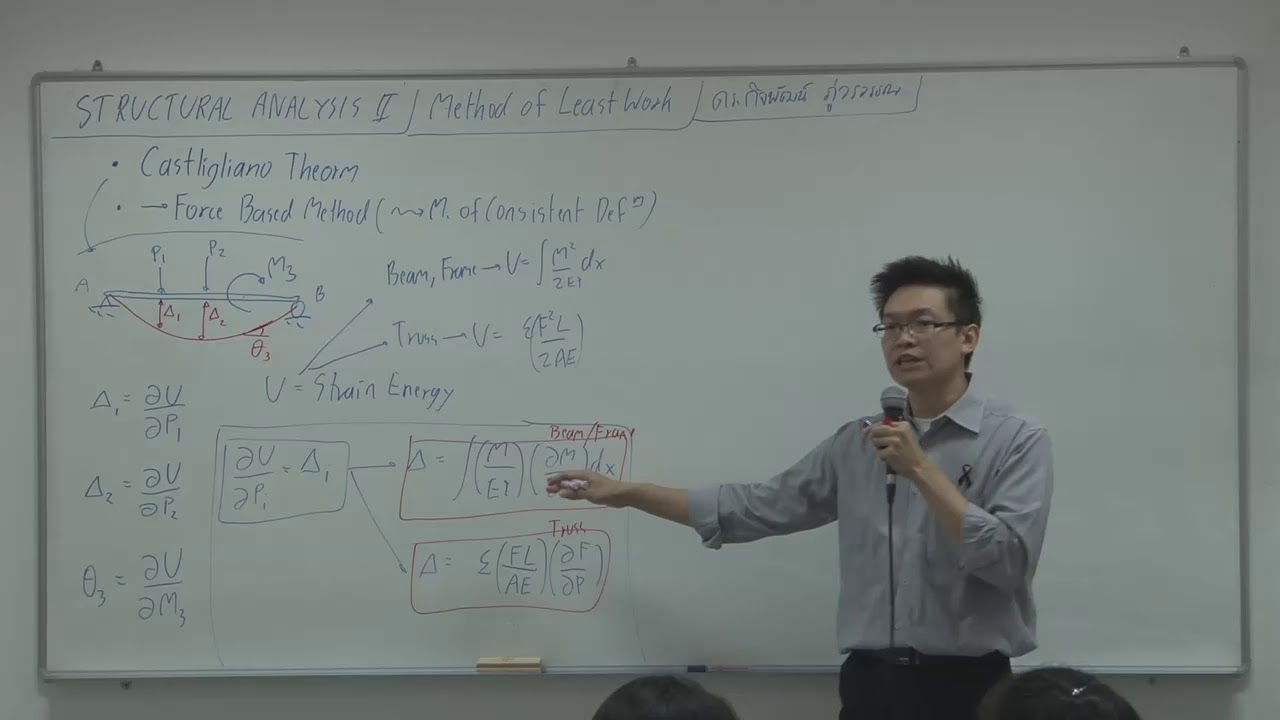 STRUCTURAL ANALYSIS II / Method of Least Work / ดร.กิจพัฒน์ ภู่วรวรรณ
• Castligliano Theorm
• → Force Based Method (~> M. of Consistent Defⁿ)
P₁ P₂ M₃
A B
Δ₁ Δ₂ θ₃
Beam, Frame → U = ∫ M²/2EI dx
Truss → U = Σ(F²L/2AE)
U = Strain Energy
Δ₁ = ∂U/∂P₁
Δ₂ = ∂U/∂P₂
θ₃ = ∂U/∂M₃
∂U/∂Pᵢ = Δ₁
Beam/Fram
Δ = ∫(M/EI)(∂M/ )dx
Truss
Δ = Σ(FL/AE)(∂F/∂P)